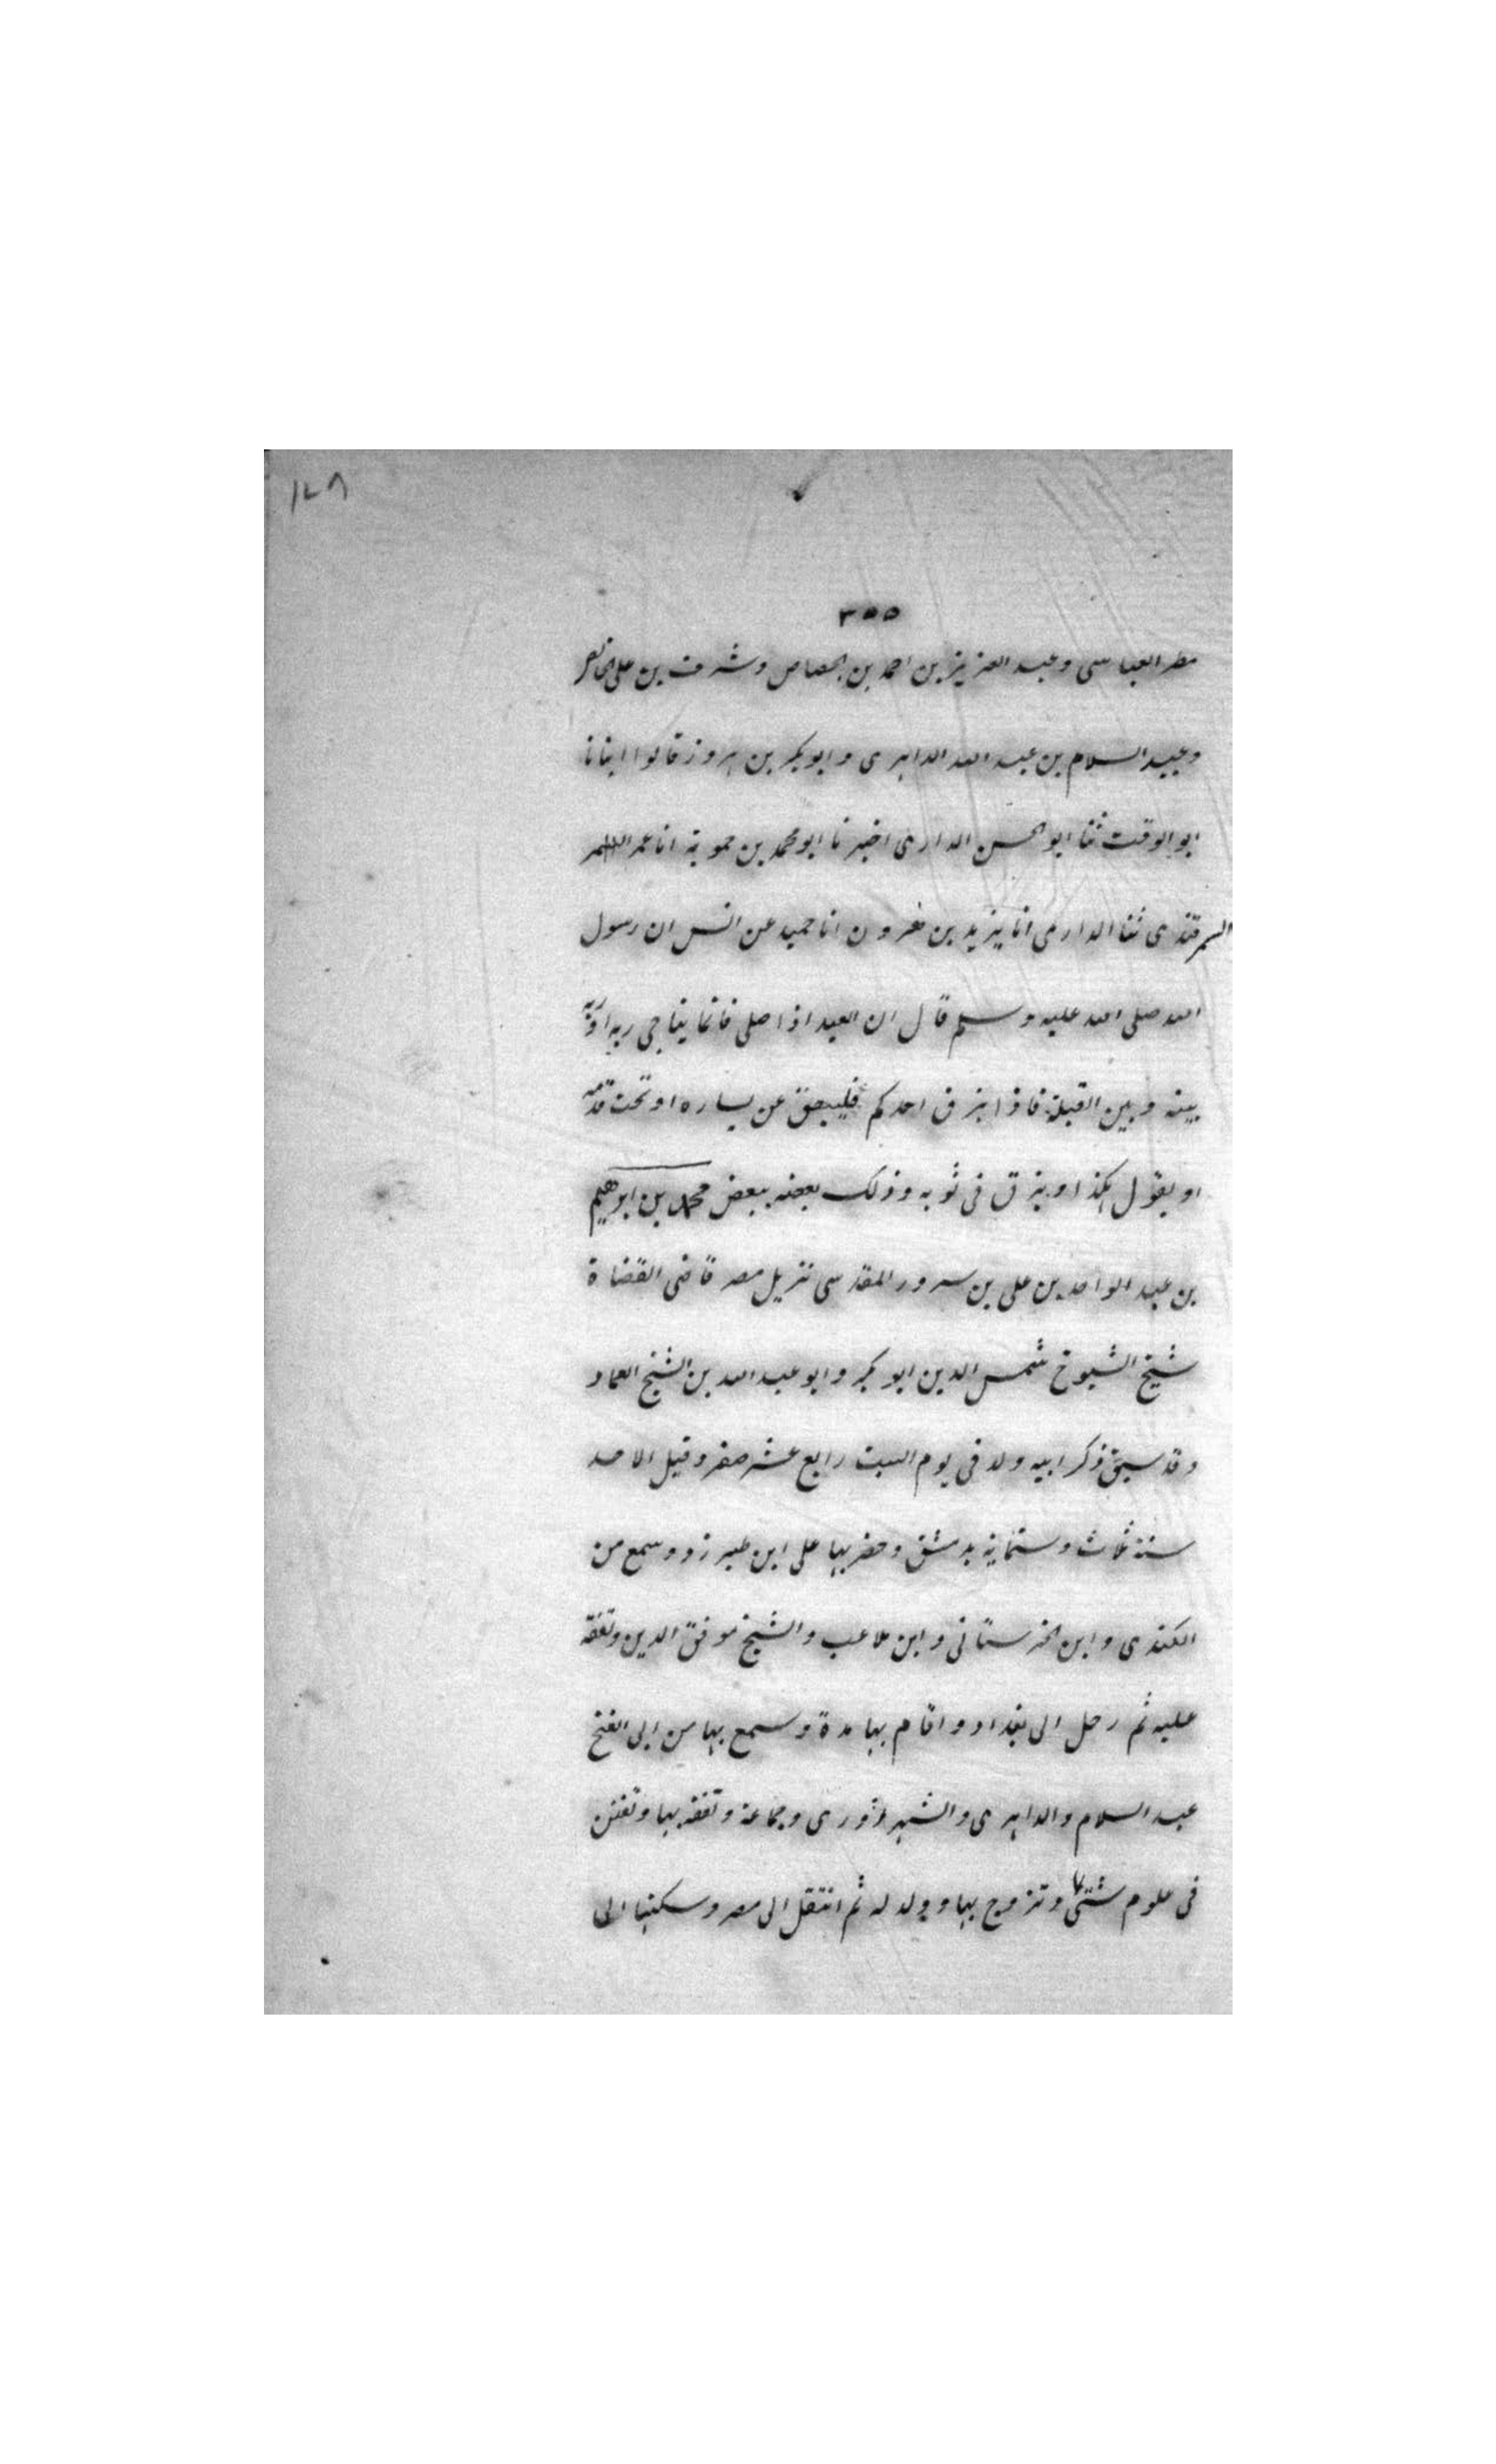 ١٧٨
٣٥٥
مطر العباسى وعبد العزيز بن احمد بن الجصاص وشرف بن على الخالصى
وعبد السلام بن عبد الله الداهرى وابو بكر بن بهروز قالوا انبانا
ابو الوقت ثنا ابو الحسن الدارى اخبرنا ابو محمد بن حموية انا عمر
السمرقندى ثنا الدارمى انا يزيد بن هرون انا حميد عن انس ان رسول
الله صلى الله عليه وسلم قال ان العبد اذا صلى فانما يناجى ربه او ربه
بينه وبين القبلة فاذا بزق احدكم فليبصق عن يساره او تحت قدمه
او يقول هكذا وبزق فى ثوبه وذلك بعضه ببعض محمد بن ابرهيم
بن عبد الواحد بن على بن سرور المقدسى نزيل مصر قاضى القضاة
شيخ الشيوخ شمس الدين ابو بكر وابو عبد الله بن الشيخ العماد
وقد سبق ذكر ابيه ولد فى يوم السبت رابع عشر صفر وقيل الاحد
سنة ثلاث وستماية بدمشق وحضر بها على ابن طبرزد وسمع من
الكندى وابن الخرستانى وابن ملاعب والشيخ موفق الدين وتفقه
عليه ثم رحل الى بغداد واقام بها مدة وسمع بها من ابى الفتح
عبد السلام والداهرى والشهرزورى وجماعة وتفقه بها وتفنن
فى علوم شتى وتزوج بها وولد له ثم انتقل الى مصر وسكنها الى